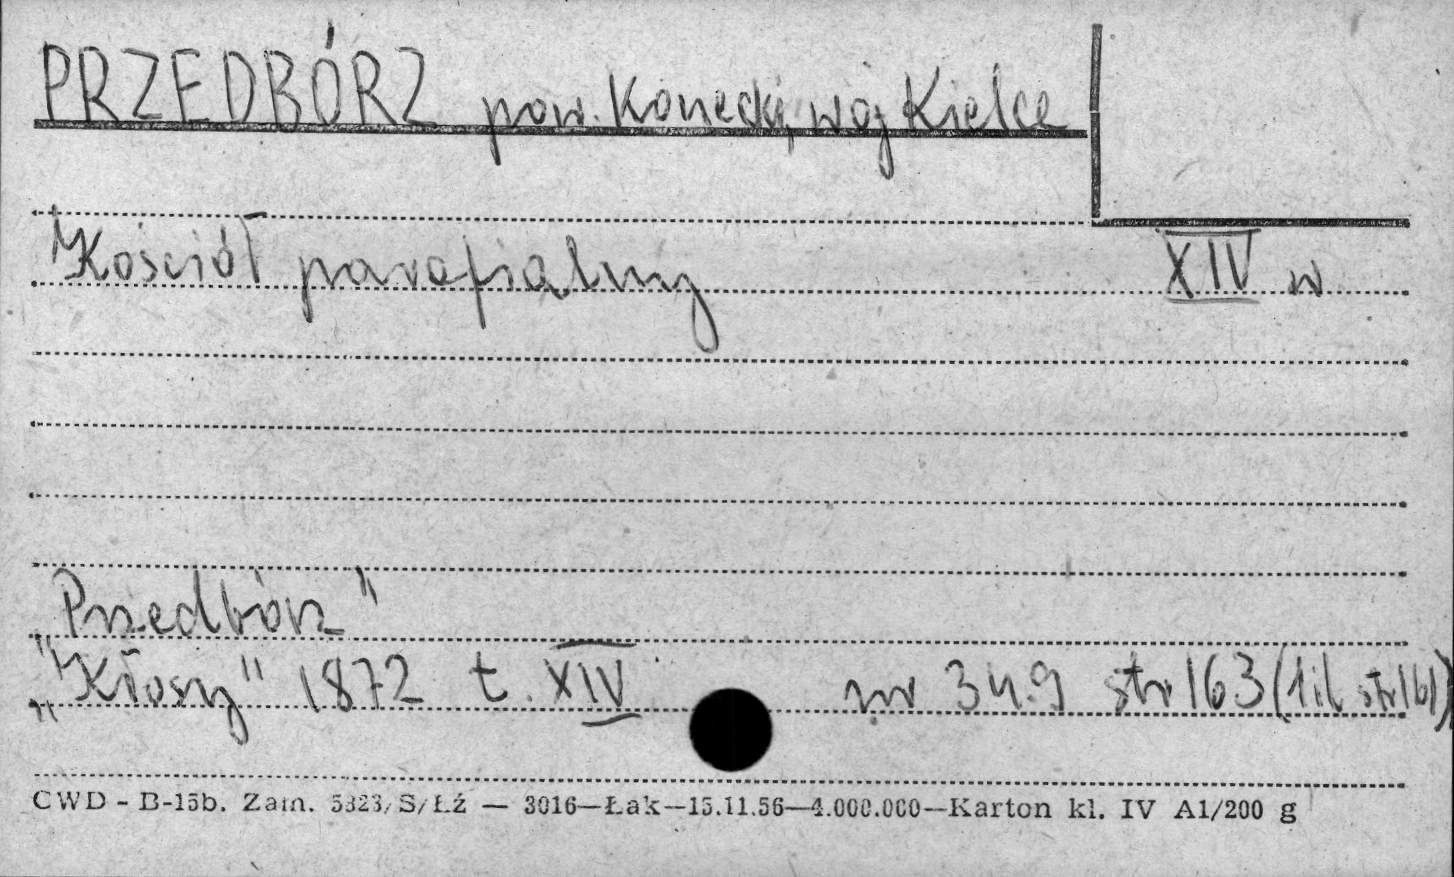 PRZEDBÓRZ pow. Konecki, woj Kielce
Kościół parafialny XIV w
"Przedbórz"
"Kłosy" 1872 t. XIV nr 349 str 163 (1 il str 161)
CWD - B-15b. Zam. 5323/S/Łź — 3016—Łak—15.11.56—4.000.000—Karton kl. IV A1/200 g